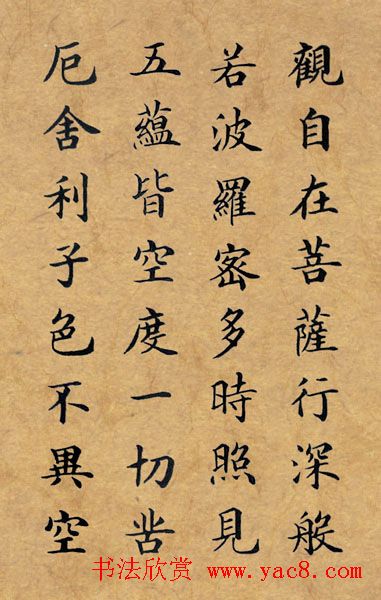 觀自在菩薩行深般
若波羅密多時照見
五蘊皆空度一切苦
厄舍利子色不異空
书法欣赏 www.yac8.com